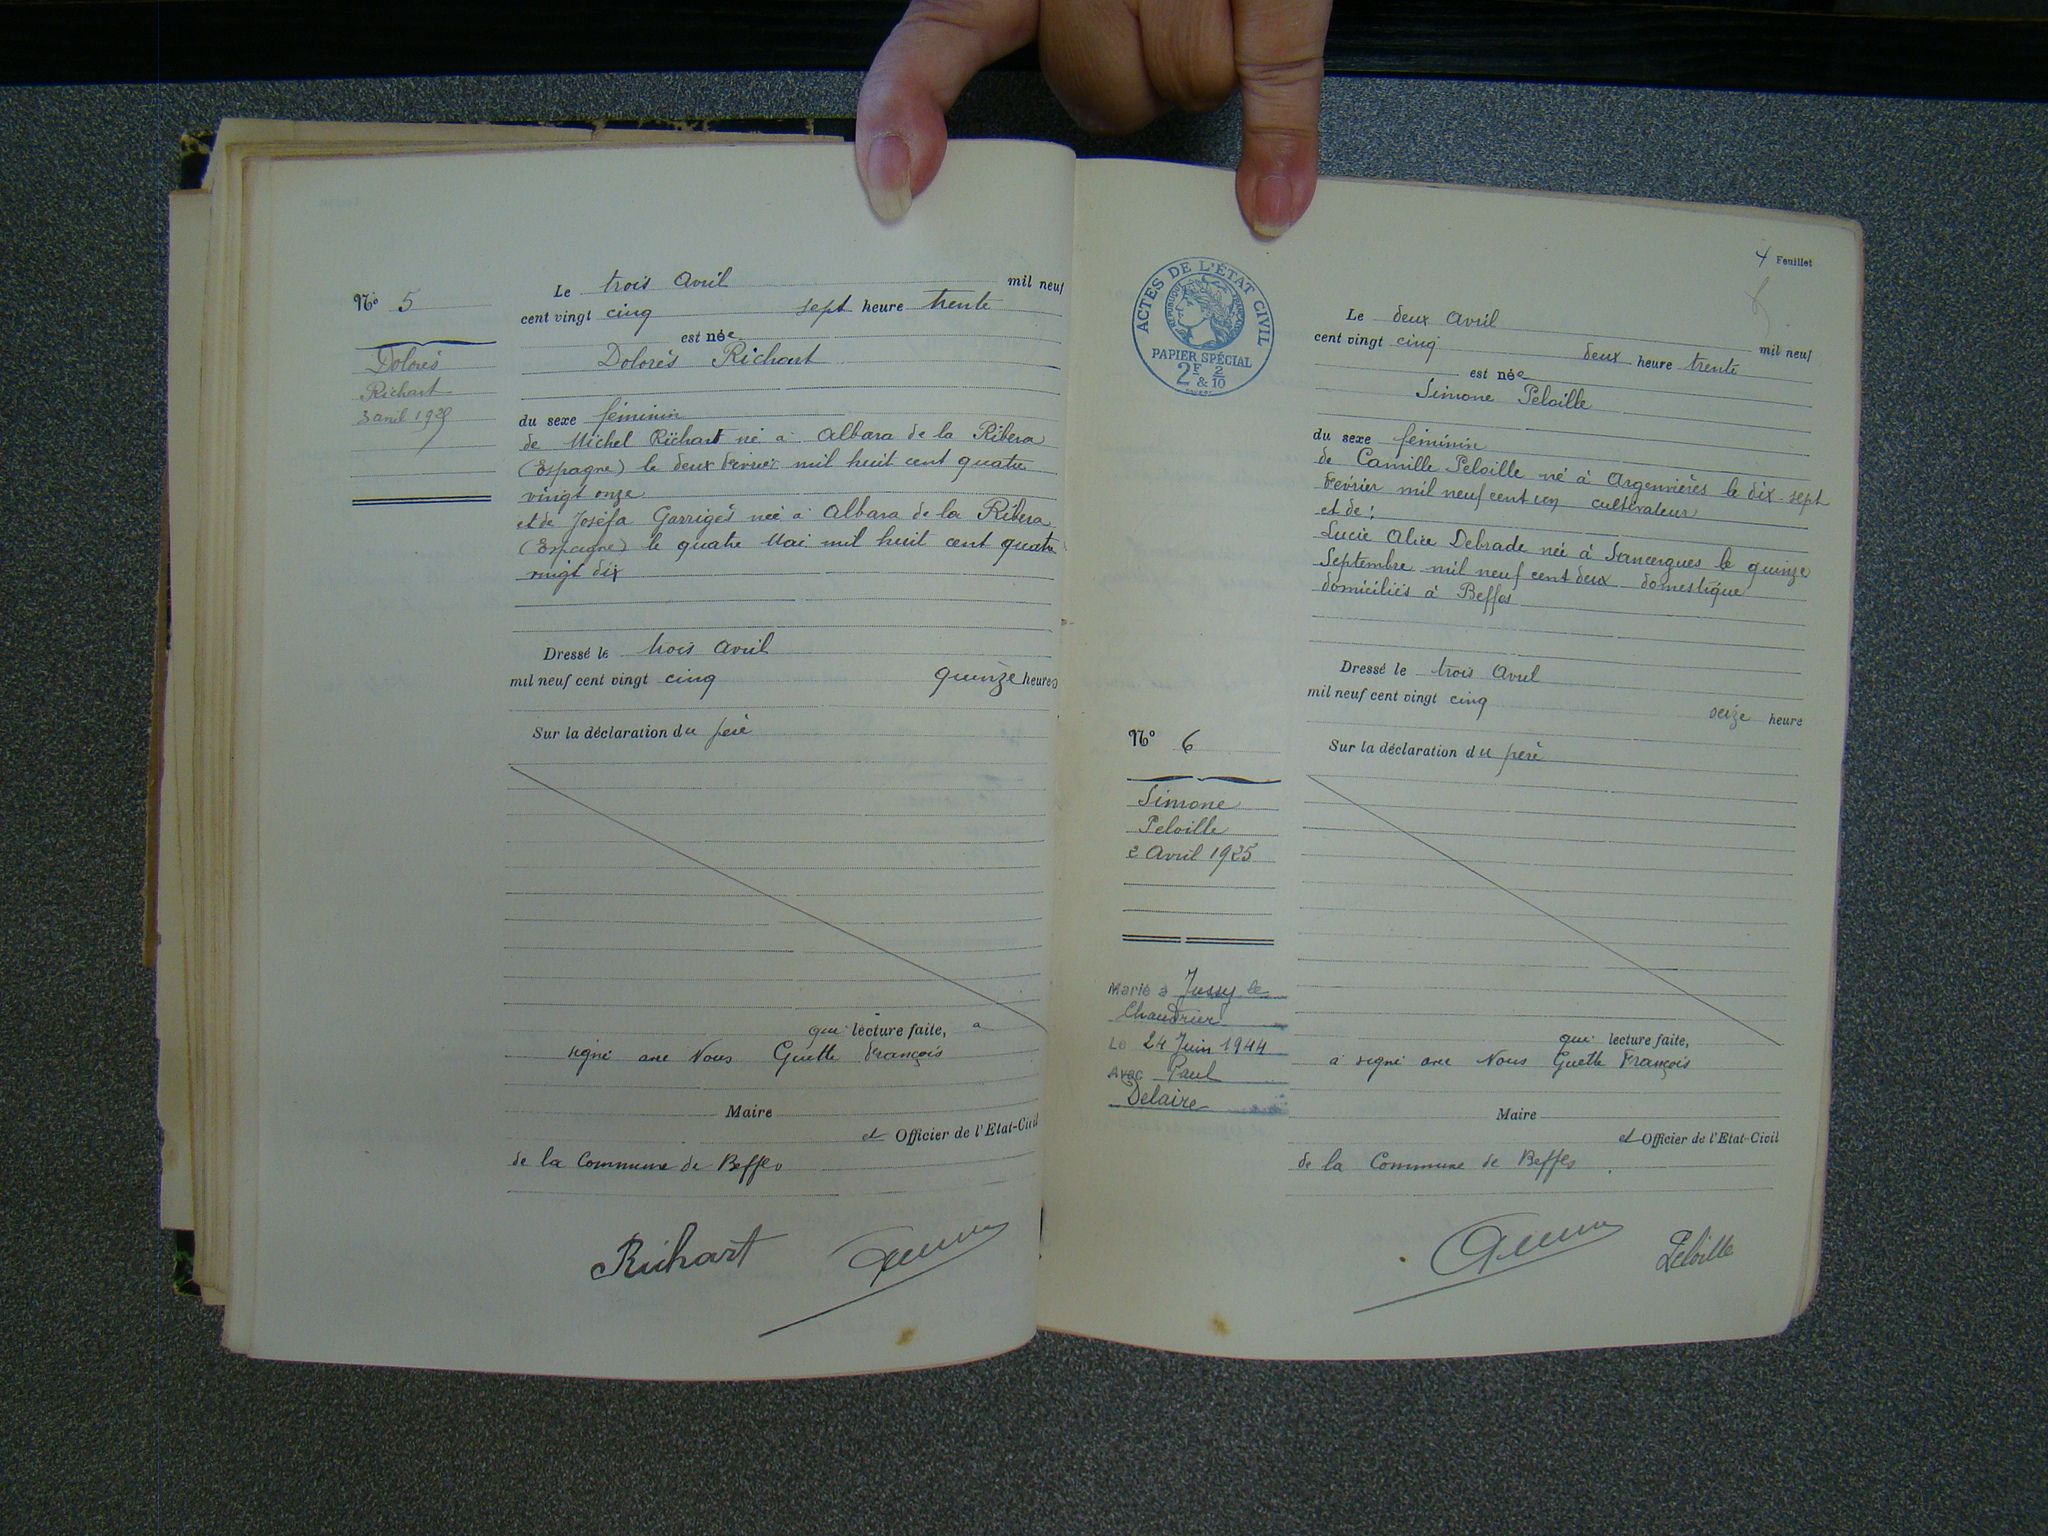 Nº 5
Dolorés
Richart
3 avril 1925
Le trois Avril mil neuf
cent vingt cinq sept heure trente
est née
Dolorés Richart
du sexe féminin
de Michel Richart né à Albara de la Ribera
(Espagne) le deux Février mil huit cent quatre
vingt onze
et de Joséfa Garrigés née à Albara de la Ribera
(Espagne) le quatre Mai mil huit cent quatre
vingt dix
Dressé le trois Avril
mil neuf cent vingt cinq quinze heures
Sur la déclaration du père
qui lecture faite, a
signé avec Nous Guette François
Maire
et Officier de l'Etat-Civil
de la Commune de Beffes
Richart
4 Feuillet
ACTES DE L'ÉTAT CIVIL
RÉPUBLIQUE FRANÇAISE
PAPIER SPÉCIAL
2F & 2/10
Le deux Avril mil neuf
cent vingt cinq deux heure trente
est née
Simone Peloille
du sexe féminin
de Camille Peloille né à Argenvières le dix-sept
Février mil neuf cent un cultivateur
et de :
Lucie Alice Debrade née à Sancergues le quinze
Septembre mil neuf cent deux domestique
domiciliés à Beffes
Dressé le trois Avril
mil neuf cent vingt cinq seize heure
Nº 6
Simone
Peloille
2 Avril 1925
Marié à Jussy le
Chaudrier
Le 24 Juin 1944
Avec Paul
Delaire
Sur la déclaration du père
qui lecture faite,
a signé avec Nous Guette François
Maire
et Officier de l'Etat-Civil
de la Commune de Beffes
Peloille